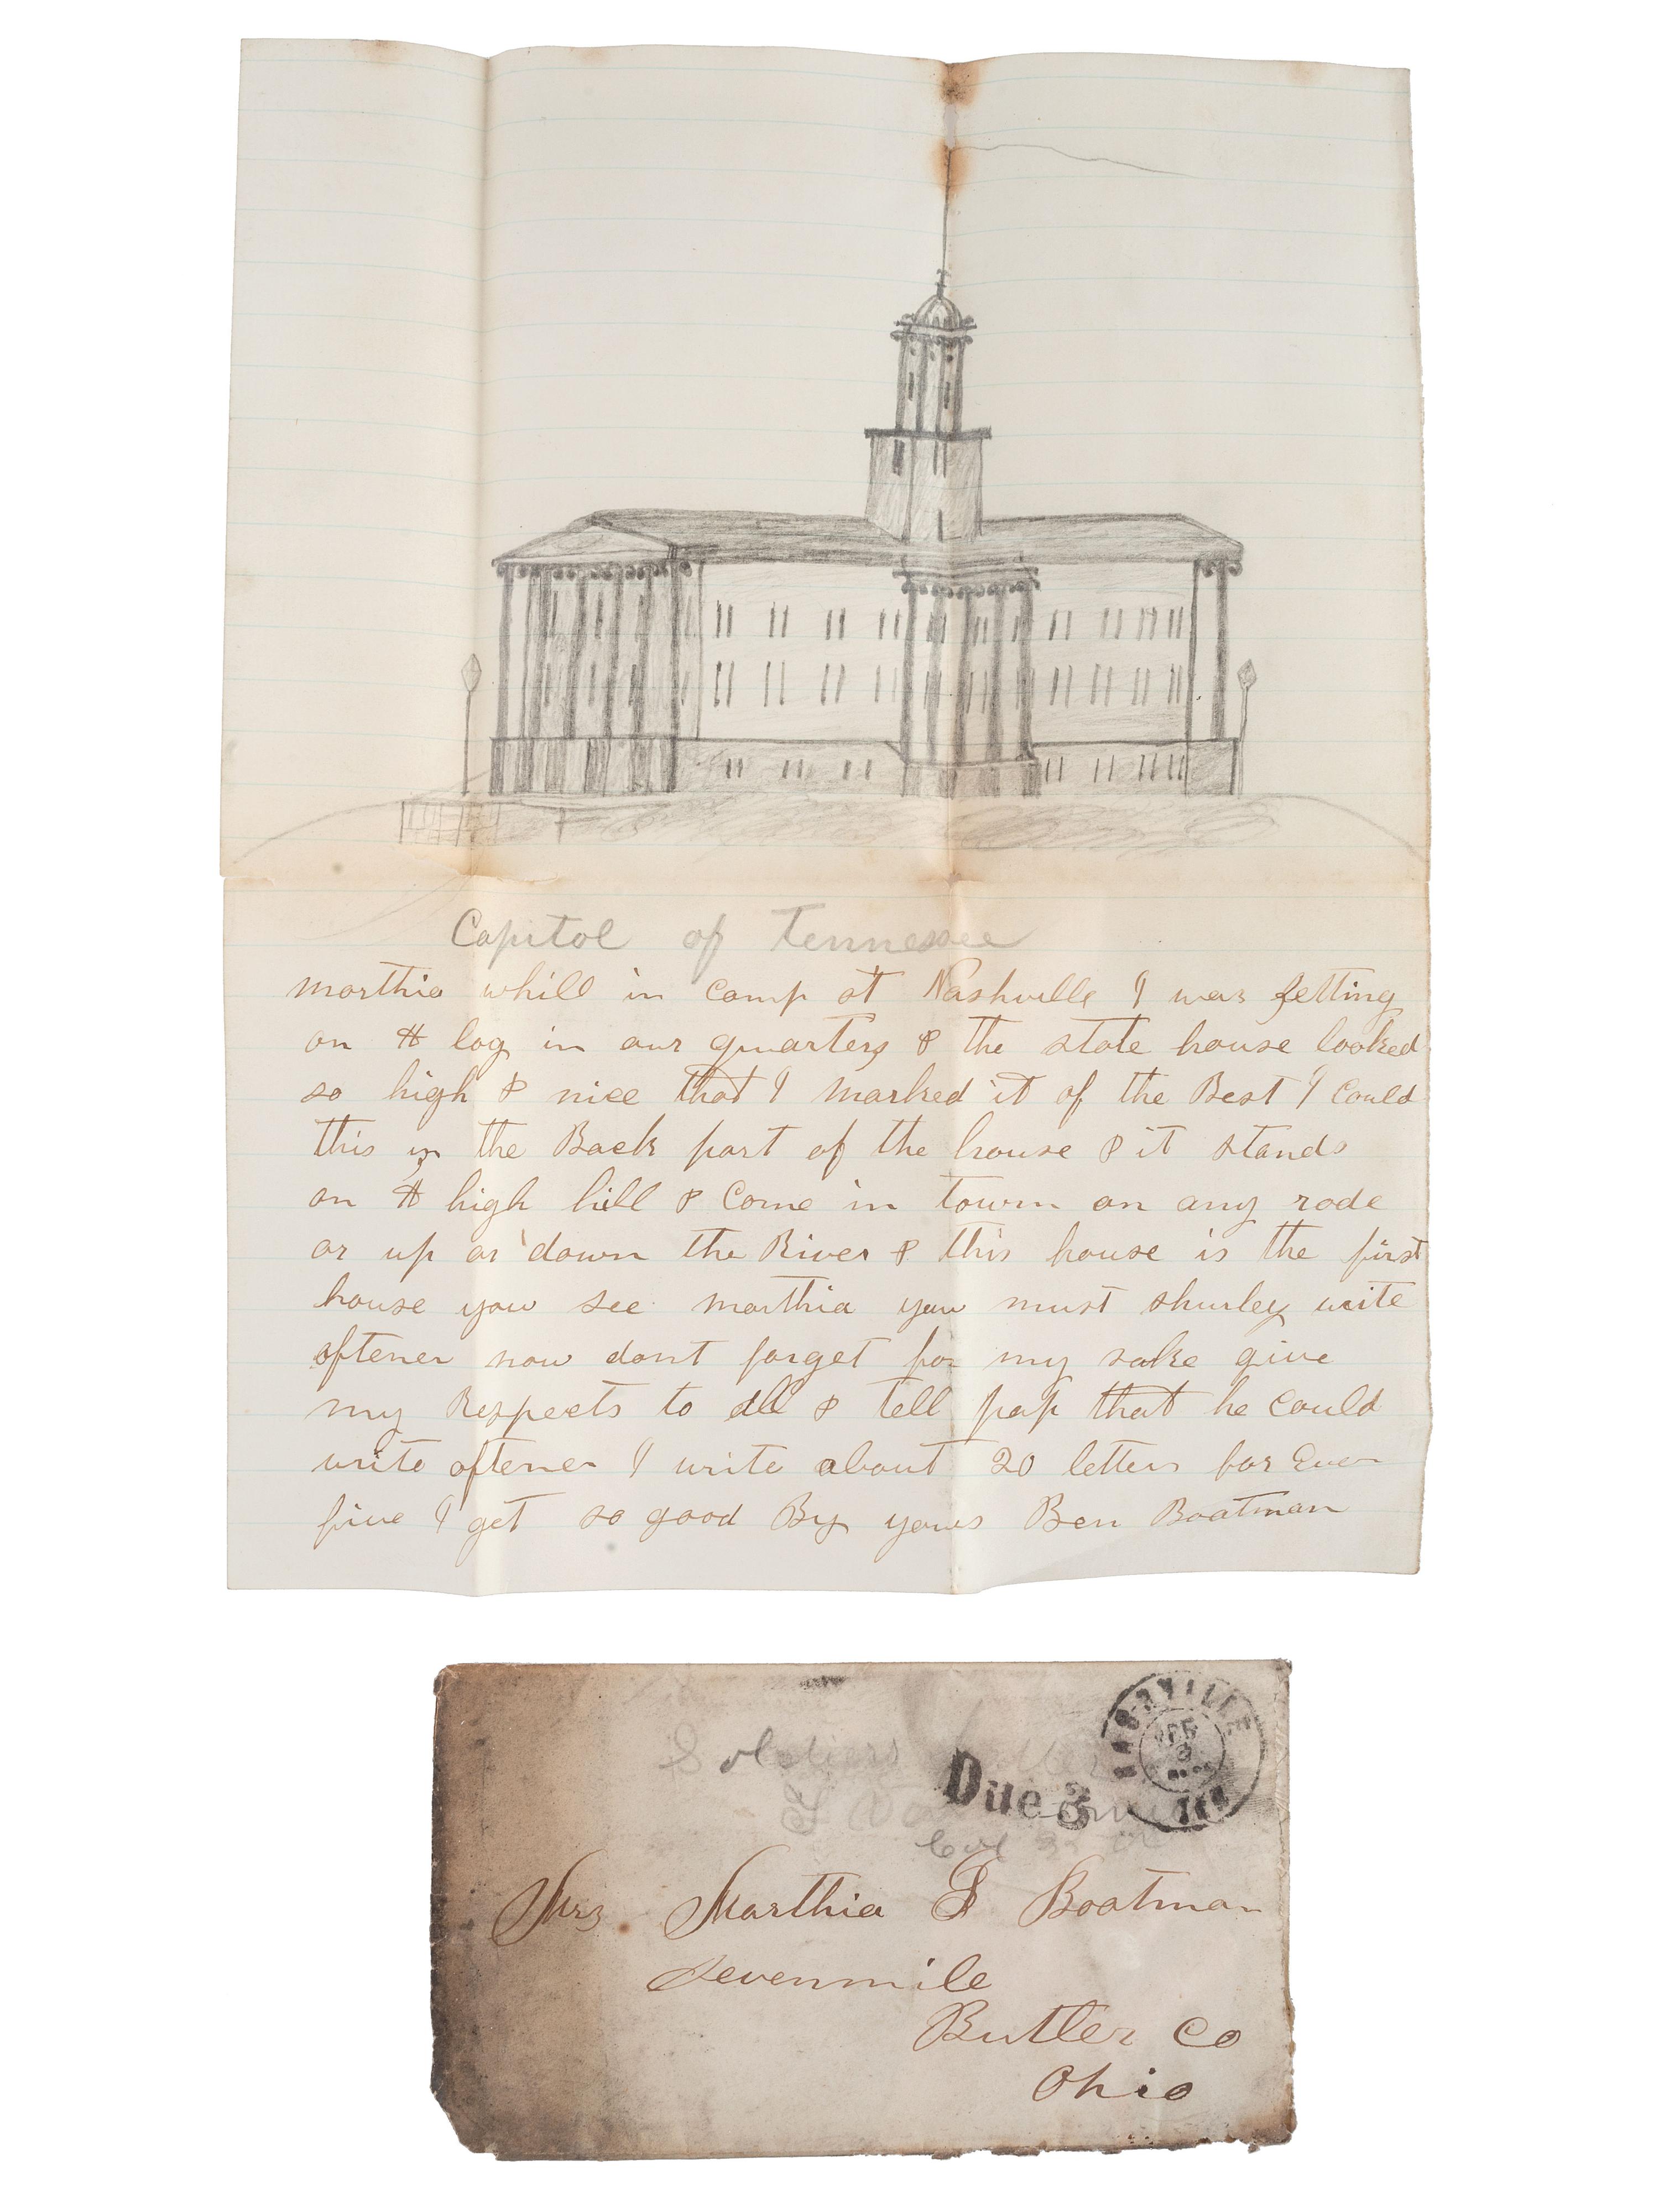 Capitol of Tennessee
marthia whill in camp at Nashville I was setting
on A log in our quarters & the state house looked
so high & nice that I marked it of the Best I could
this is the Back part of the house & it stands
on A high hill & come in town on any rode
or up or down the River & this house is the first
house you see marthia you must shurley write
oftener now dont forget for my sake give
my Respects to all & tell pap that he could
write oftener I write about 20 letters for Ever
five I get so good By yours Ben Boatman
NASHVILLE
FEB
3
Soldiers Letter
Due 3
Mrs Marthia J Boatman
Sevenmile
Butler Co
Ohio